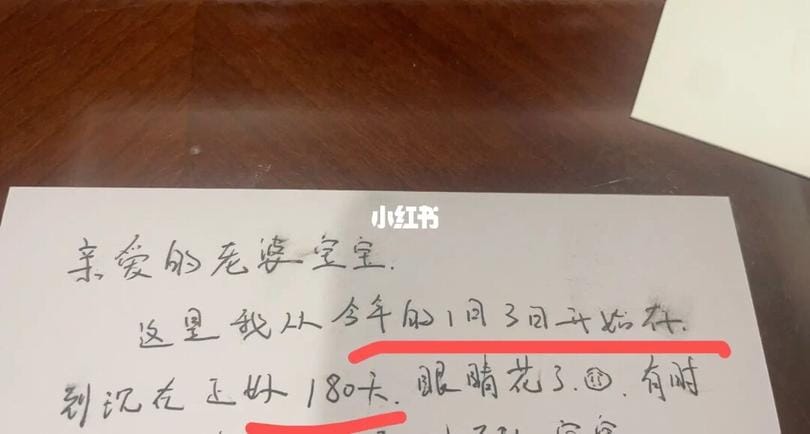 小红书
亲爱的老婆宝宝.
这里我从今年的1月3日开始存.
到沉在正好180天.眼睛花了.有时
宝宝